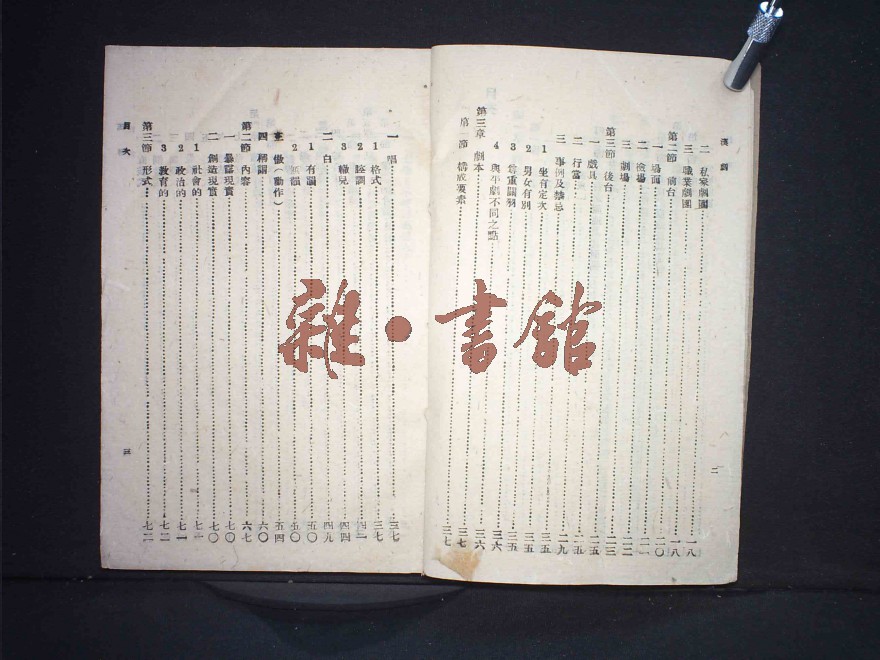 漢劇
二
二 私家劇團……一八
三 職業劇團……一八
第二節 前台……一八
一 場面……二〇
二 檢場……二一
三 劇場……二二
第三節 後台……二三
一 戲具……二五
二 行當……二五
三 事例及禁忌……二九
1 坐有定次……三五
2 男女有別……三五
3 尊重開朔……三五
4 與平劇不同之點……三六
第三章 劇本……三六
第一節 構成要素……三七
一 唱……三七
1 格式……三七
2 腔調……四二
3 轍兒……四四
二 白……四九
1 有韻……五〇
2 無韻……五〇
三 做(動作)……五四
四 精調……六〇
第二節 內容……六七
一 暴露現實……七〇
二 創造現實……七〇
1 社會的……七一
2 政治的……七一
3 教育的……七二
第三節 形式……七二
目次
三
雜·書館